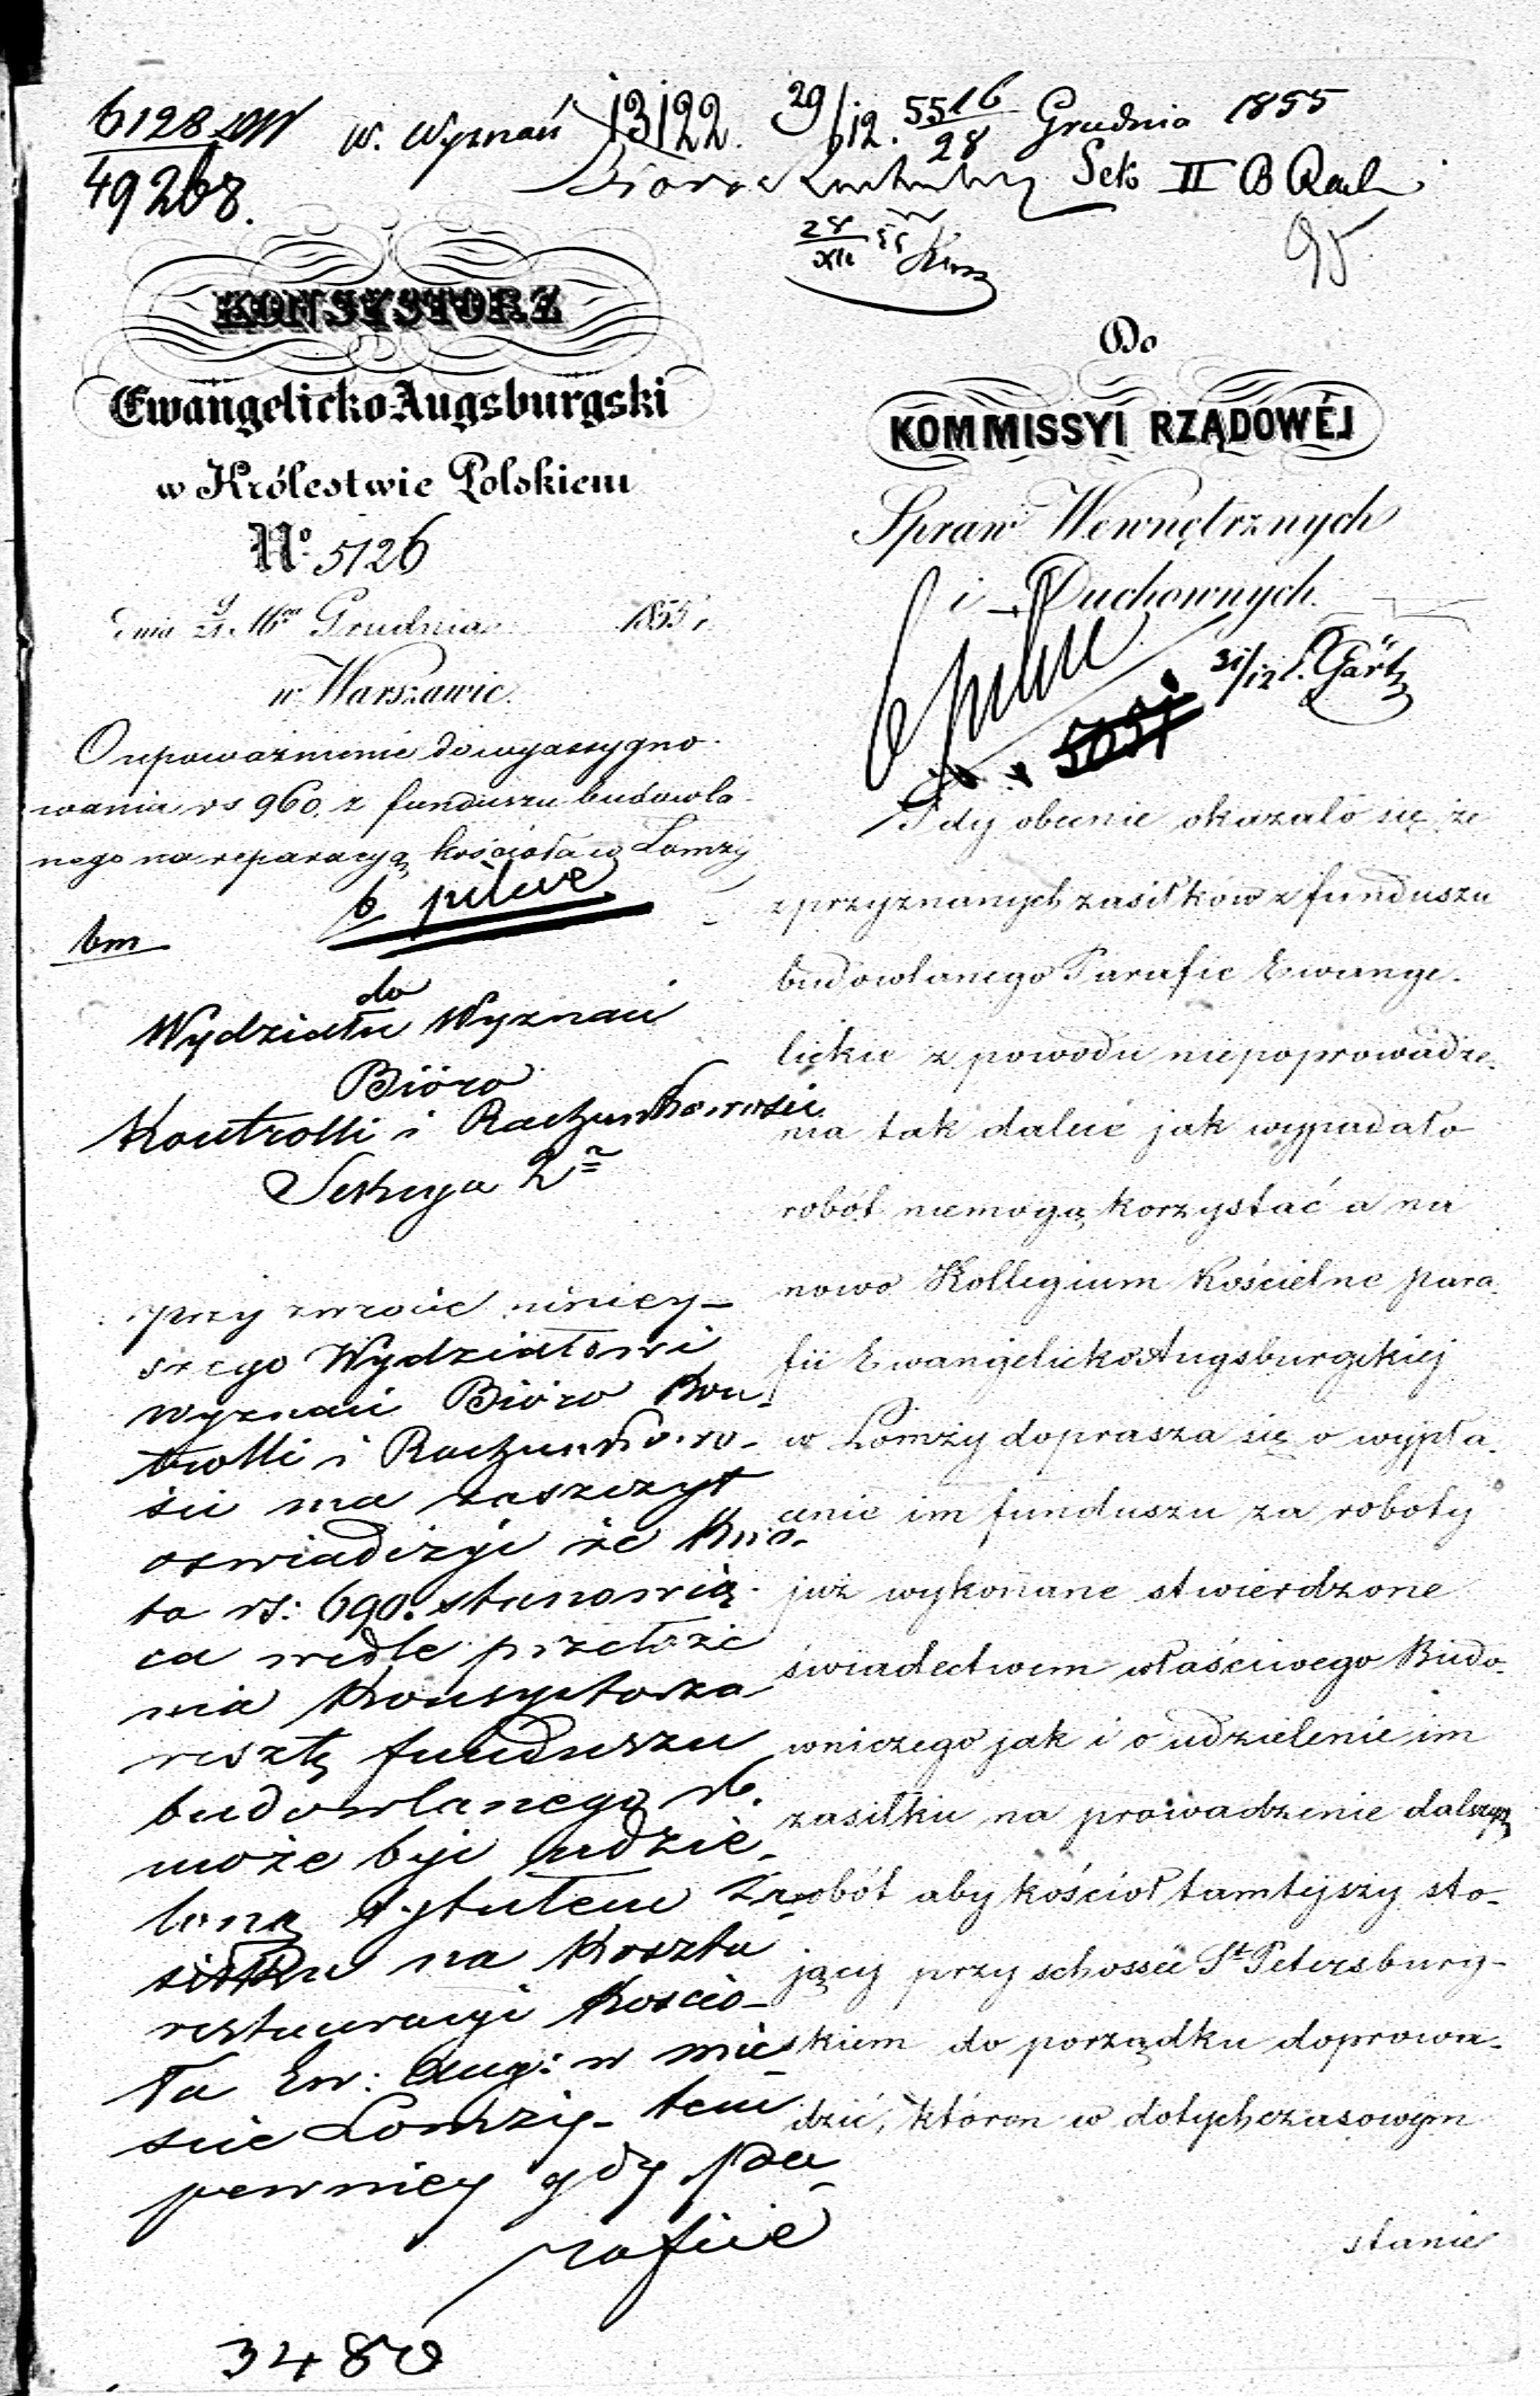 6128
49268.
W. Wyznań 13122. 29/12. 5516/28 Grudnia 1855
Sek II B Rach
28/XII 55
95
KONSYSTORZ
Ewangelicko Augsburgski
w Królestwie Polskiem
No. 5126
dnia 9/21. Grudnia 1855 r.
w Warszawie.
O upoważnienie do wyassygno-
wania rs 960. z funduszu budowla-
nego na reparacyą kościoła w Łomży
b pilne
bm
do
Wydziału Wyznań
Bióro
Kontrolli i Rachunkowości
Sekcya 2a
Przy zwrocie niniey-
szego Wydziałowi
Wyznań Bióro Kon-
trolli i Rachunkowo-
ści ma zaszczyt
oświadczyć że kwo-
ta rs: 690. stanowią-
ca wedle przełoże
nia Konsystorza
resztę funduszu
budowlanego
może być udzie-
loną tytułem za-
siłku na koszta
restauracyi kościo-
ła Ew: Aug: w mie-
ście Łomży - tem
pewniey gdy pa-
rafie
3480
Do
KOMMISSYI RZĄDOWÉJ
Spraw Wewnętrznych
i Duchownych.
b pilne
31/12 Gärtz
5051
Gdy obecnie okazało się że
z przyznanych zasiłków z funduszu
budowlanego Parafie Ewange-
lickie z powodu niepoprowadze-
nia tak dalece jak wypadało
robót niemogą korzystać a na
nowo Kollegium Kościelne para-
fii Ewangelicko Augsburgskiej
w Łomży doprasza się o wypła-
cenie im funduszu za roboty
już wykonane stwierdzone
świadectwem właściwego Budo-
wniczego jak i o udzielenie im
zasiłku na prowadzenie dalszych
robót aby kościoł tamtejszy sto-
jący przy schossée St Petersburg-
skiem do porządku doprowa-
dzić, któren w dotychczasowym
stanie